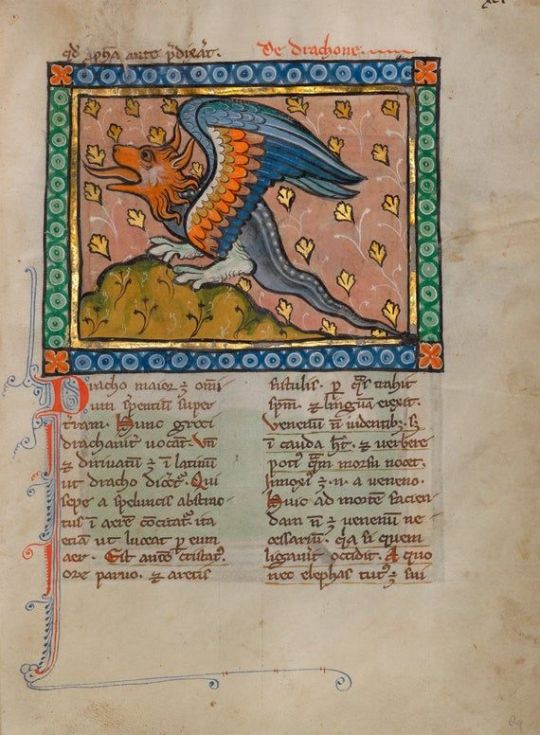 De drachone.
Dracho maior ē omni
um s̄pentiū super
t̄ram. Hunc greci
drachanit uocāt. Vn̄
⁊ diriuatū ē ī latinū
ut dracho dicet᷒. Qui
sepe a speluncis abstrac
tus ī aerē cōcitat᷒ ita
etiā ut luceat ꝑ eum
aer. Est autē cristat᷒
ore paruo. ⁊ artis
fistulis. ꝑ q̄s t̄hit
sp̄m. ⁊ linguā exerit.
Venenū n̄ ī dentib᷒ sꝫ
ī cauda h̄t. ⁊ uerbere
poti᷒ q̄m morsu nocet.
Īnoxi᷒ ē. n̄. a ueneno.
Huic ad mortē facien
dam n̄ ē uenenū ne
cessariū. q̄a si quem
ligauit occidit. A quo
nec elephas tut᷒ ē sui